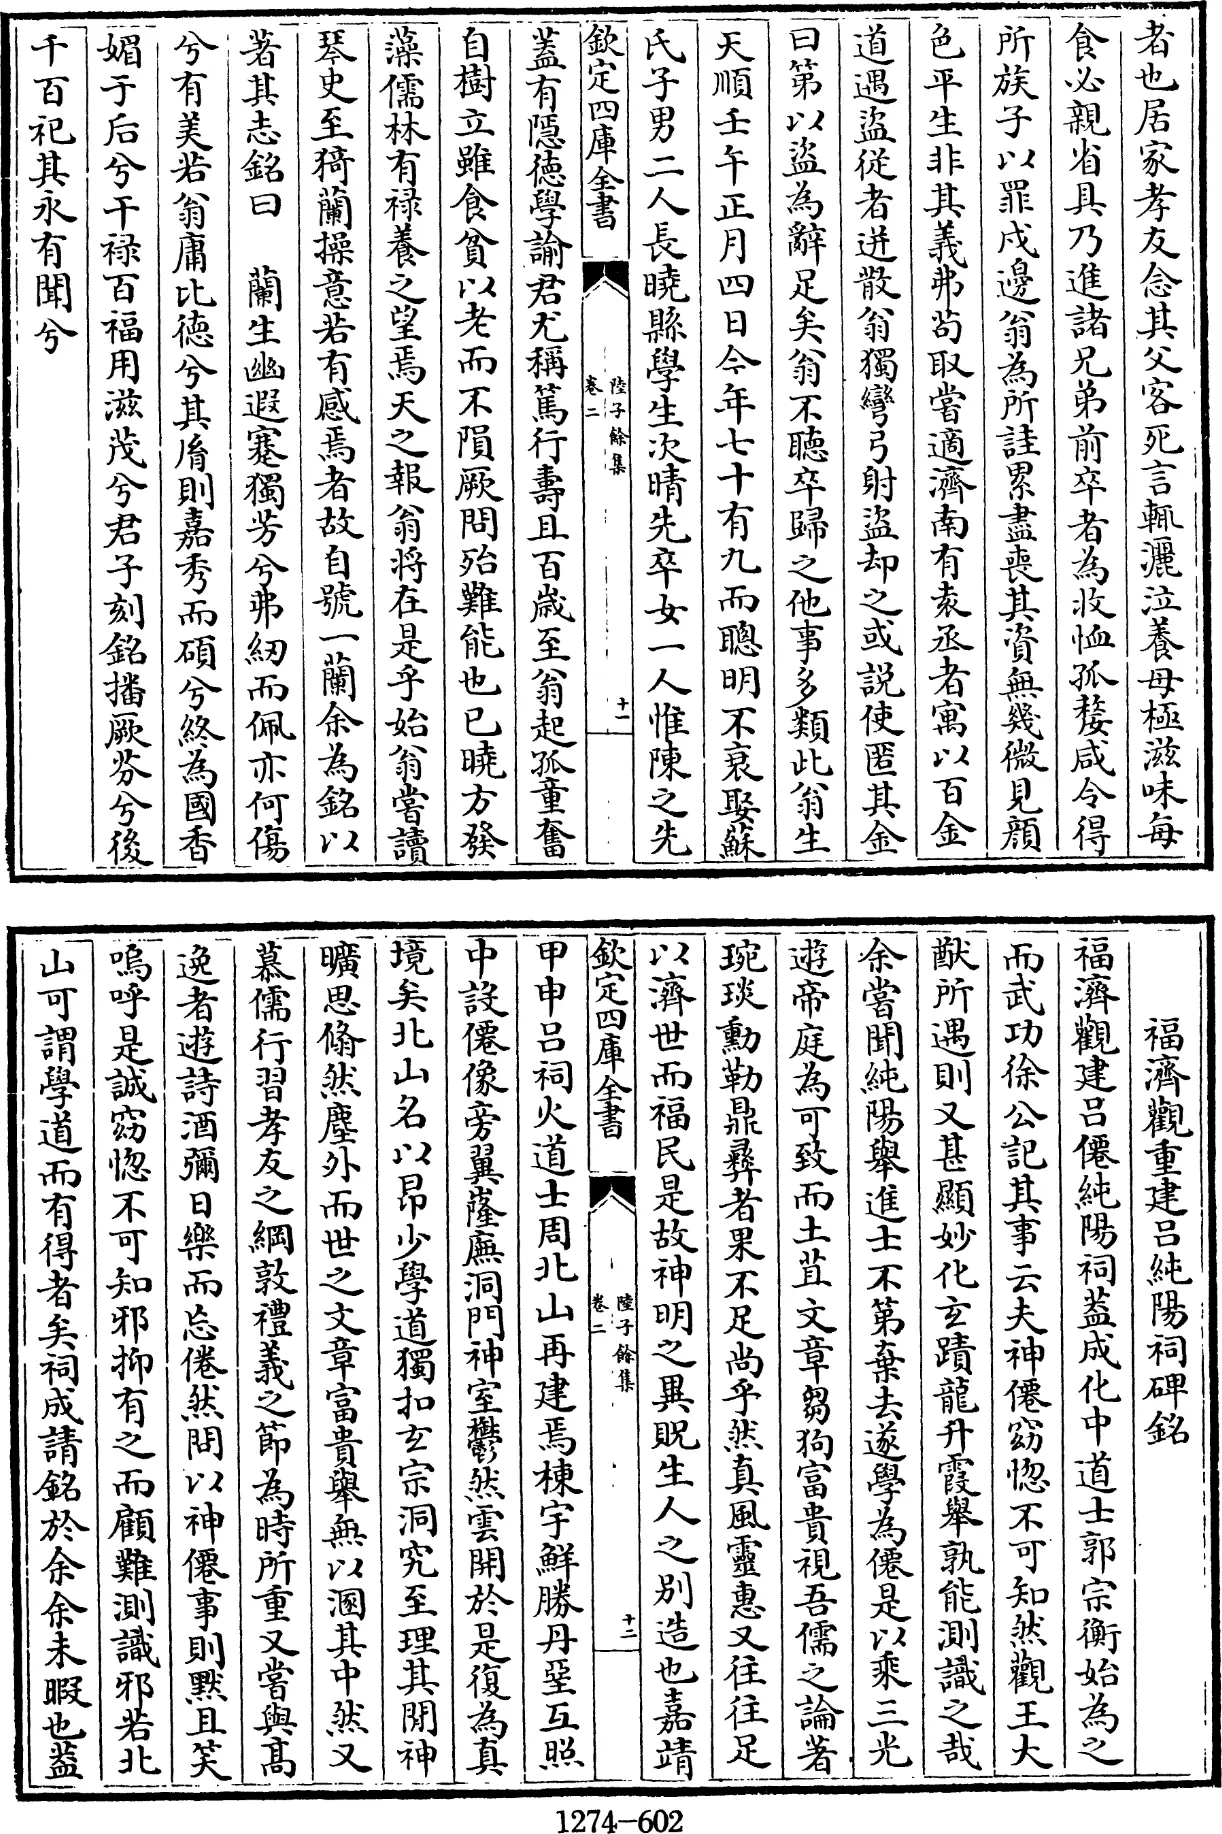 者也居家孝友念其父客死言輒灑泣養母極滋味每
食必親省具乃進諸兄弟前卒者為收恤孤嫠咸令得
所族子以罪戍邊翁為所詿累盡喪其資無幾微見顔
色平生非其義弗茍取嘗適濟南有袁丞者寓以百金
道遇盜從者迸散翁獨彎弓射盜却之或説使匿其金
曰第以盜為辭足矣翁不聽卒歸之他事多類此翁生
天順壬午正月四日今年七十有九而聰明不衰娶蘇
氏子男二人長曉縣學生次晴先卒女一人惟陳之先
欽定四庫全書
陸子餘集
卷二
十一
蓋有隱德學諭君尤稱篤行壽且百歲至翁起孤童奮
自樹立雖食貧以老而不隕厥問殆難能也已曉方發
藻儒林有禄養之望焉天之報翁將在是乎始翁嘗讀
琴史至猗蘭操意若有感焉者故自號一蘭余為銘以
著其志銘曰　蘭生幽遐蹇獨芳兮弗紉而佩亦何傷
兮有美若翁庸比德兮其脩則嘉秀而碩兮終為國香
媚于后兮干禄百福用滋茂兮君子刻銘播厥芬兮後
千百祀其永有聞兮
福濟觀重建吕純陽祠碑銘
福濟觀建吕僊純陽祠葢成化中道士郭宗衡始為之
而武功徐公記其事云夫神僊窈惚不可知然觀王大
猷所遇則又甚顯妙化玄蹟龍升霞舉孰能測識之哉
余嘗聞純陽舉進士不第棄去遂學為僊是以乘三光
遊帝庭為可致而土苴文章芻狗富貴視吾儒之論著
琬琰勳勒鼎彝者果不足尚乎然真風靈惠又往往足
以濟世而福民是故神明之異貺生人之别造也嘉靖
欽定四庫全書
陸子餘集
卷二
十二
甲申吕祠火道士周北山再建焉棟宇鮮勝丹堊互照
中設僊像旁翼㕓廡洞門神室鬱然雲開於是復為真
境矣北山名以昂少學道獨扣玄宗洞究至理其閒神
曠思翛然塵外而世之文章富貴舉無以溷其中然又
慕儒行習孝友之綱敦禮義之節為時所重又嘗與髙
逸者遊詩酒彌日樂而忘倦然問以神僊事則默且笑
嗚呼是誠窈惚不可知邪抑有之而顧難測識邪若北
山可謂學道而有得者矣祠成請銘於余余未暇也葢
1274-602